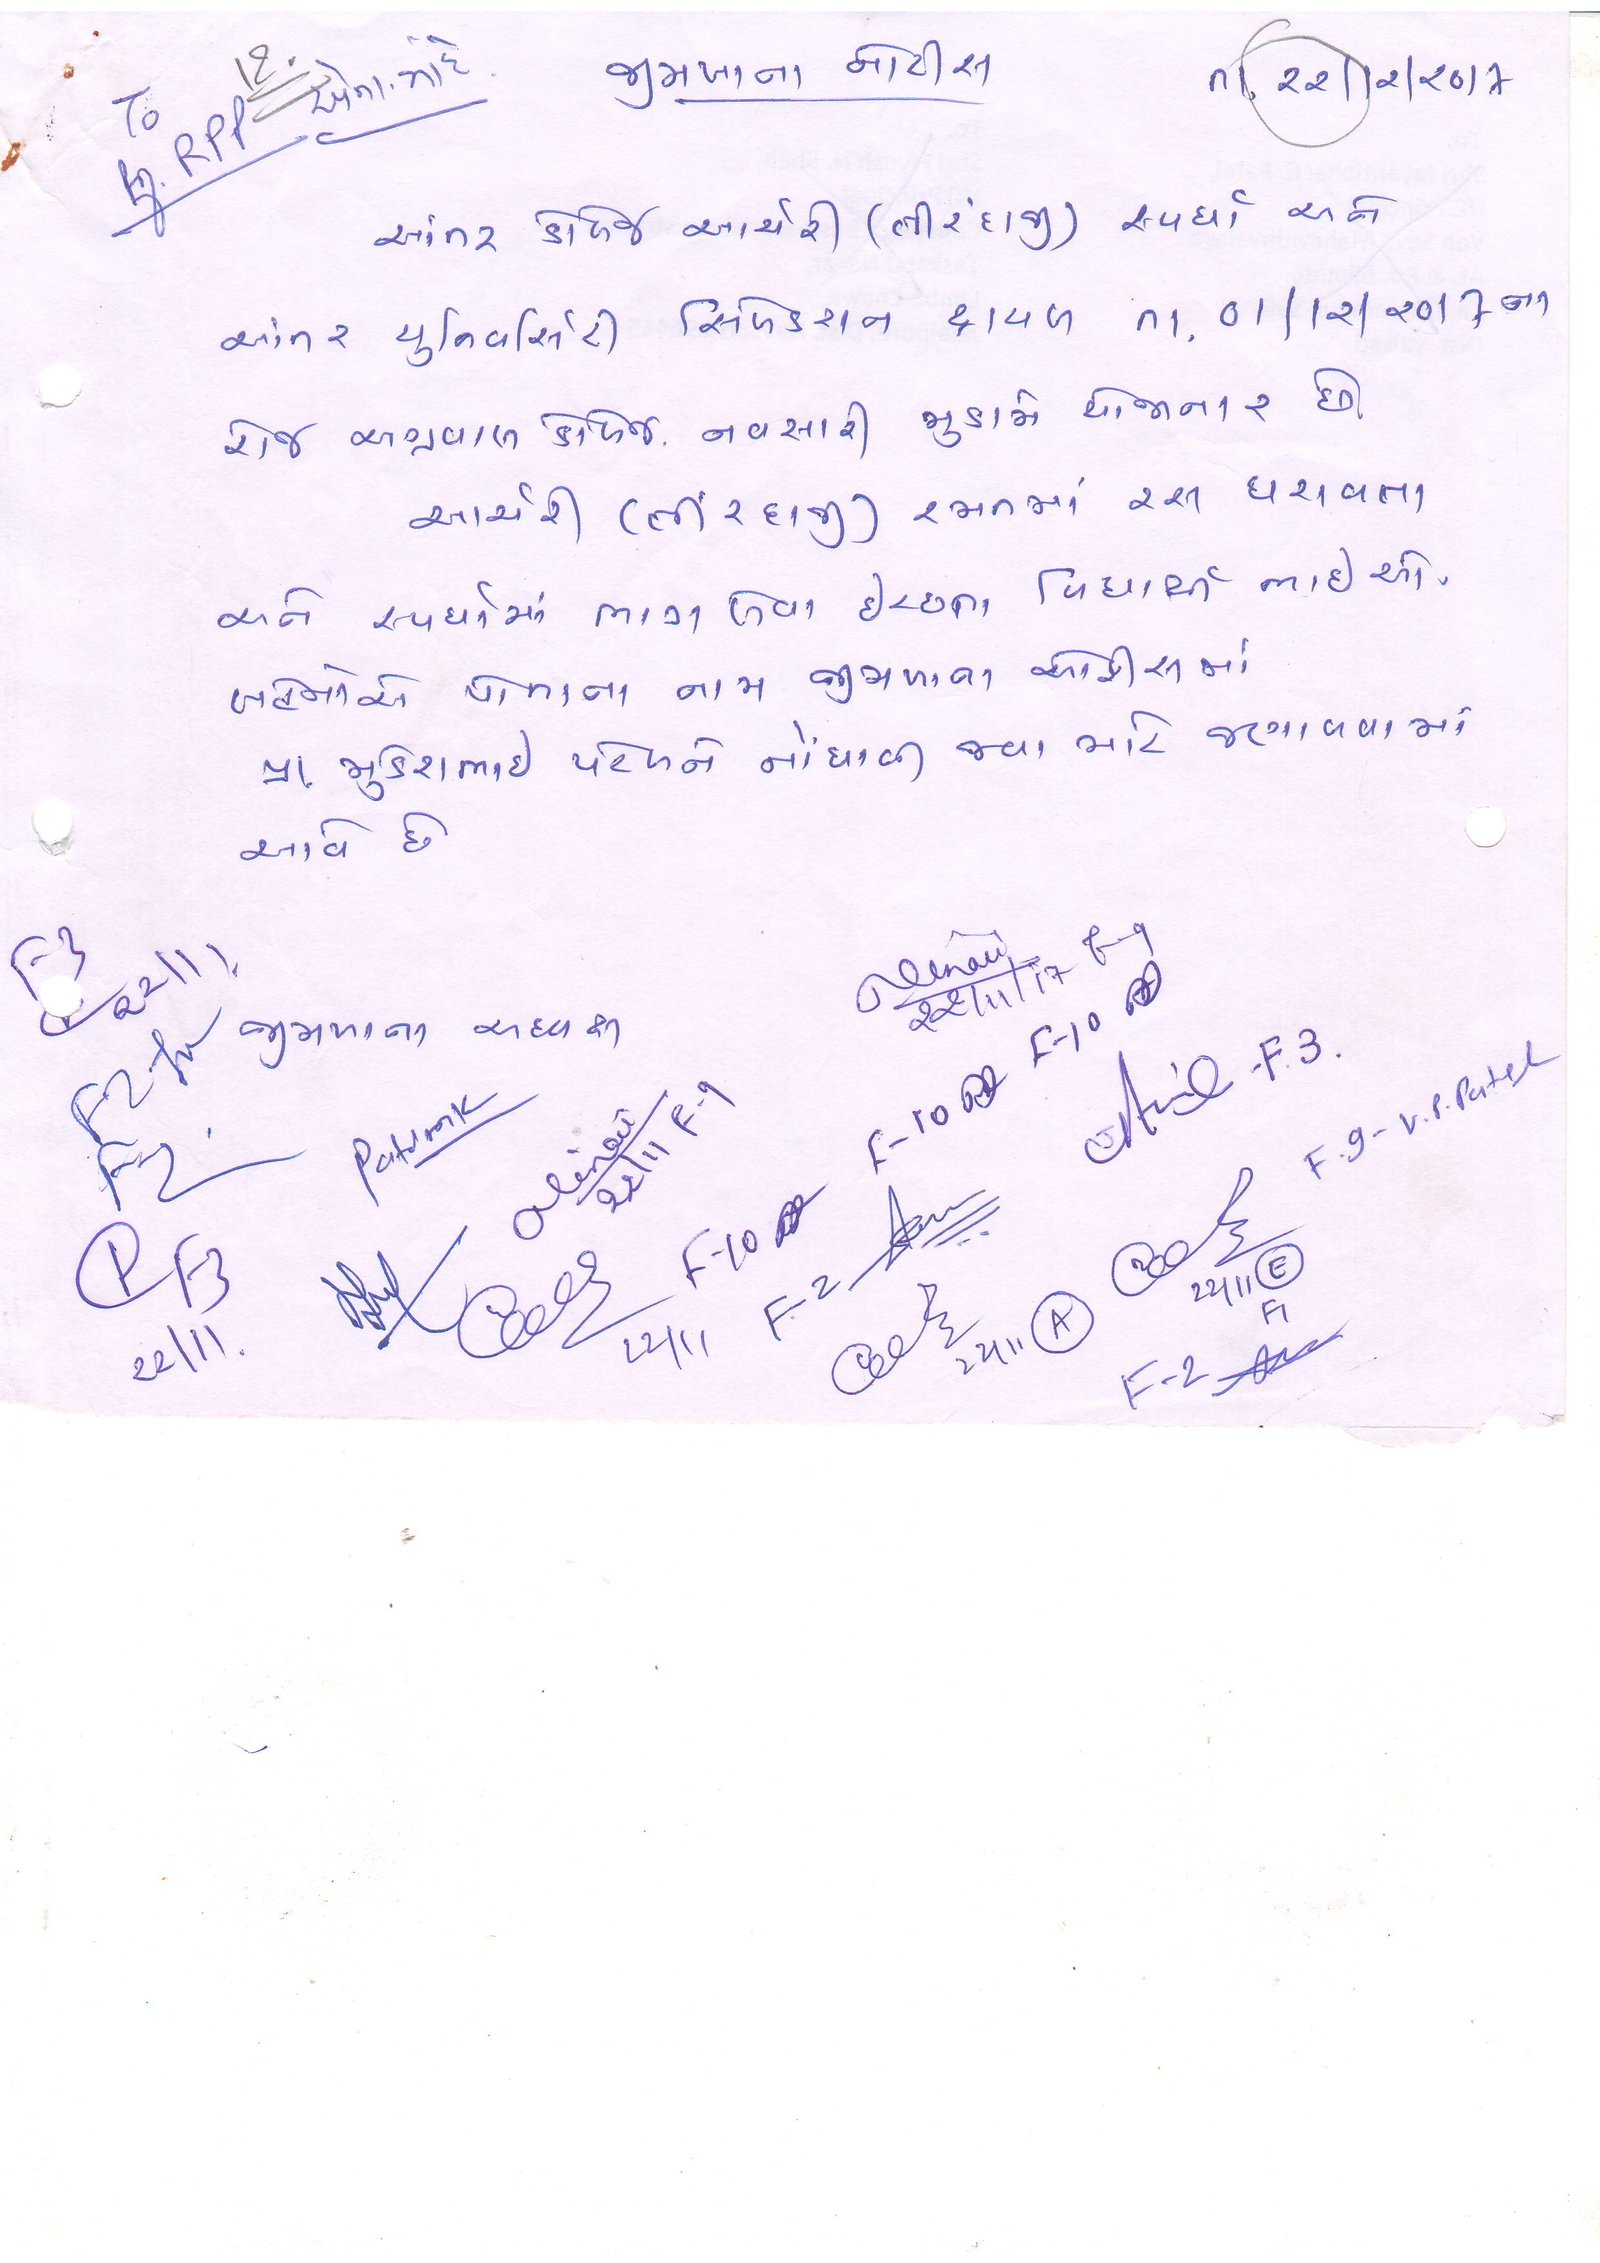 To
RPP
૧૭.
જીમખાના નોટીસ
તા. ૨૨/૧૨/૨૦૧૭
આંતર કોલેજ આર્ચરી (તીરંદાજી) સ્પર્ધા અને
આંતર યુનિવર્સિટી સિલેકશન ટ્રાયલ તા. ૦૧/૧૨/૨૦૧૭ના
રોજ અગ્રવાલ કોલેજ. નવસારી મુકામે યોજાનાર છે
આર્ચરી (તીરંદાજી) રમતમાં રસ ધરાવતા
અને સ્પર્ધામાં ભાગ લેવા ઈચ્છતા વિદ્યાર્થી ભાઈઓ.
બહેનોએ પોતાના નામ જીમખાના ઓફીસમાં
પ્રા. મુકેશભાઈ પટેલને નોંધાવી જવા માટે જણાવવામાં
આવે છે
F-3
22/11.
જીમખાના અધ્યક્ષ
F2
F-2
P F3
22/11.
22/11 F-9
F-10
22/11
22/11/17 F-9
F-10
F-10
F.3.
F.9 - V.P. Patel
F-2
22/11 A
22/11 E
F1
F-2